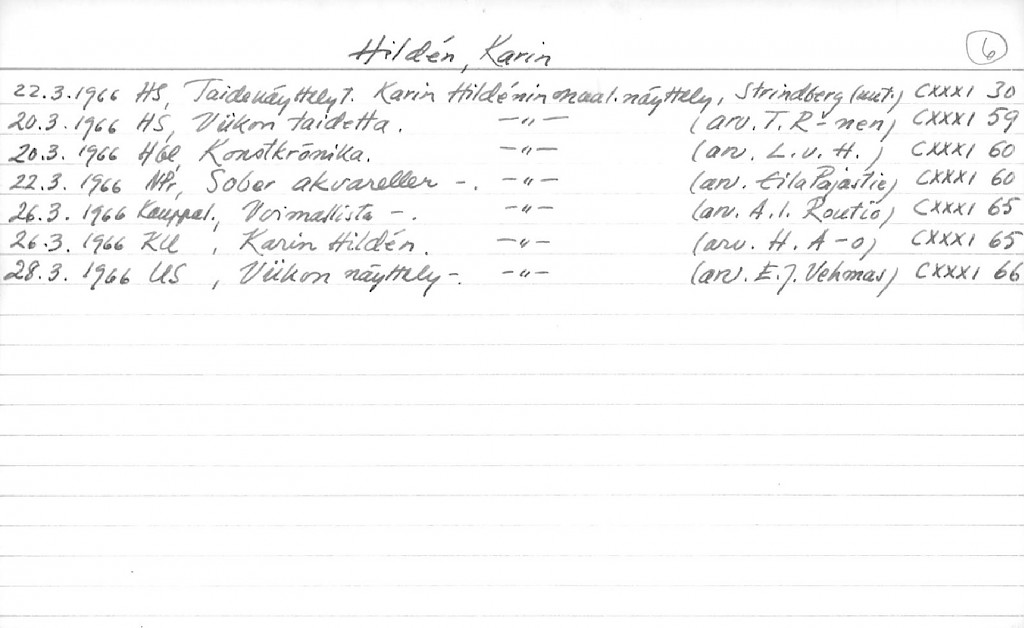 Hildén, Karin
6
22.3.1966 HS, Taidenäyttelyt. Karin Hildénin maal.näyttely, Strindberg (uut.) CXXXI 30
20.3.1966 HS, Viikon taidetta. —"— (arv. T. R-nen) CXXXI 59
20.3.1966 Hbl, Konstkrönika. —"— (arv. L.v.H.) CXXXI 60
22.3.1966 NPr, Sober akvareller -. —"— (arv. Eila Pajastie) CXXXI 60
26.3.1966 Kauppal., Voimallista -. —"— (arv. A.I. Routio) CXXXI 65
26.3.1966 KU, Karin Hildén. —"— (arv. H. A-o) CXXXI 65
28.3.1966 US, Viikon näyttely-. —"— (arv. E.J. Vehmas) CXXXI 66